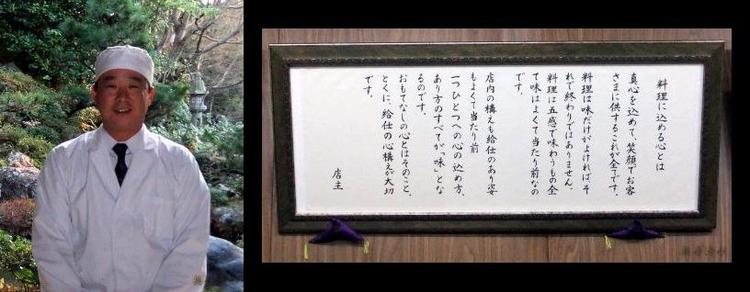 料理に込める心とは
真心を込めて、笑顔でお客
さまに供するこれが全てです。
料理は味だけがよければそ
れで終わりではありません。
料理は五感で味わうもの全
て味はよくて当たり前なの
です。
店内の構えも給仕のあり姿
もよくて当たり前
一つひとつへの心の込め方、
あり方のすべてが「味」とな
るのです。
おもてなしの心とはそのこと、
とくに、給仕の心構えが大切
です。
店主